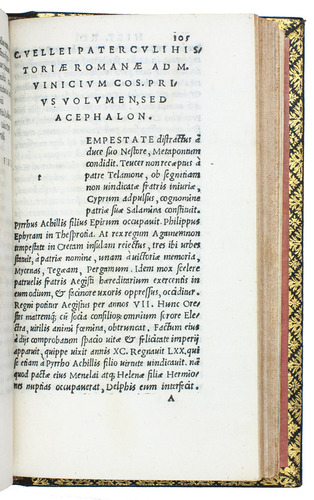 105
C. VELLEI PATERCVLI HIS
TORIÆ ROMANÆ AD M.
VINICIVM COS. PRI
VS VOLVMEN, SED
ACEPHALON.
EMPESTATE distractus à
duce suo Nestore, Metapontum
condidit. Teucer non receptus à
t patre Telamone, ob segnitiam
non uindicatæ fratris iniuriæ,
Cyprum adpulsus, cognominem
patriæ suæ Salamina constituit.
Pyrrhus Achillis filius Epirum occupauit. Philippus
Ephyram in Thesprotia. At rex regum Agamemnon
tempestate in Cretam insulam reiectus, tres ibi urbes
statuit, à patriæ nomine, unam à uictoriæ memoria,
Mycenas, Tegæam, Pergamum. Idem mox scelere
patruelis fratris Aegisti hæreditarium exercentis in
eum odium, & facinore uxoris oppressus, occiditur.
Regni potitur Aegistus per annos VII. Hunc Ore
stes matremq; cū socia consiliorū omnium sorore Ele
ctra, uirilis animi fœmina, obtruncat. Factum eius
à dijs comprobatum spacio uitæ & felicitate imperij
apparuit, quippe uixit annis XC. Regnauit LXX. qui
se etiam à Pyrrho Achillis filio uirtute uindicauit. na
quod pactæ eius Menelai atq; Helenæ filiæ Hermio
nes nuptias occupauerat, Delphis eum interfecit.
A